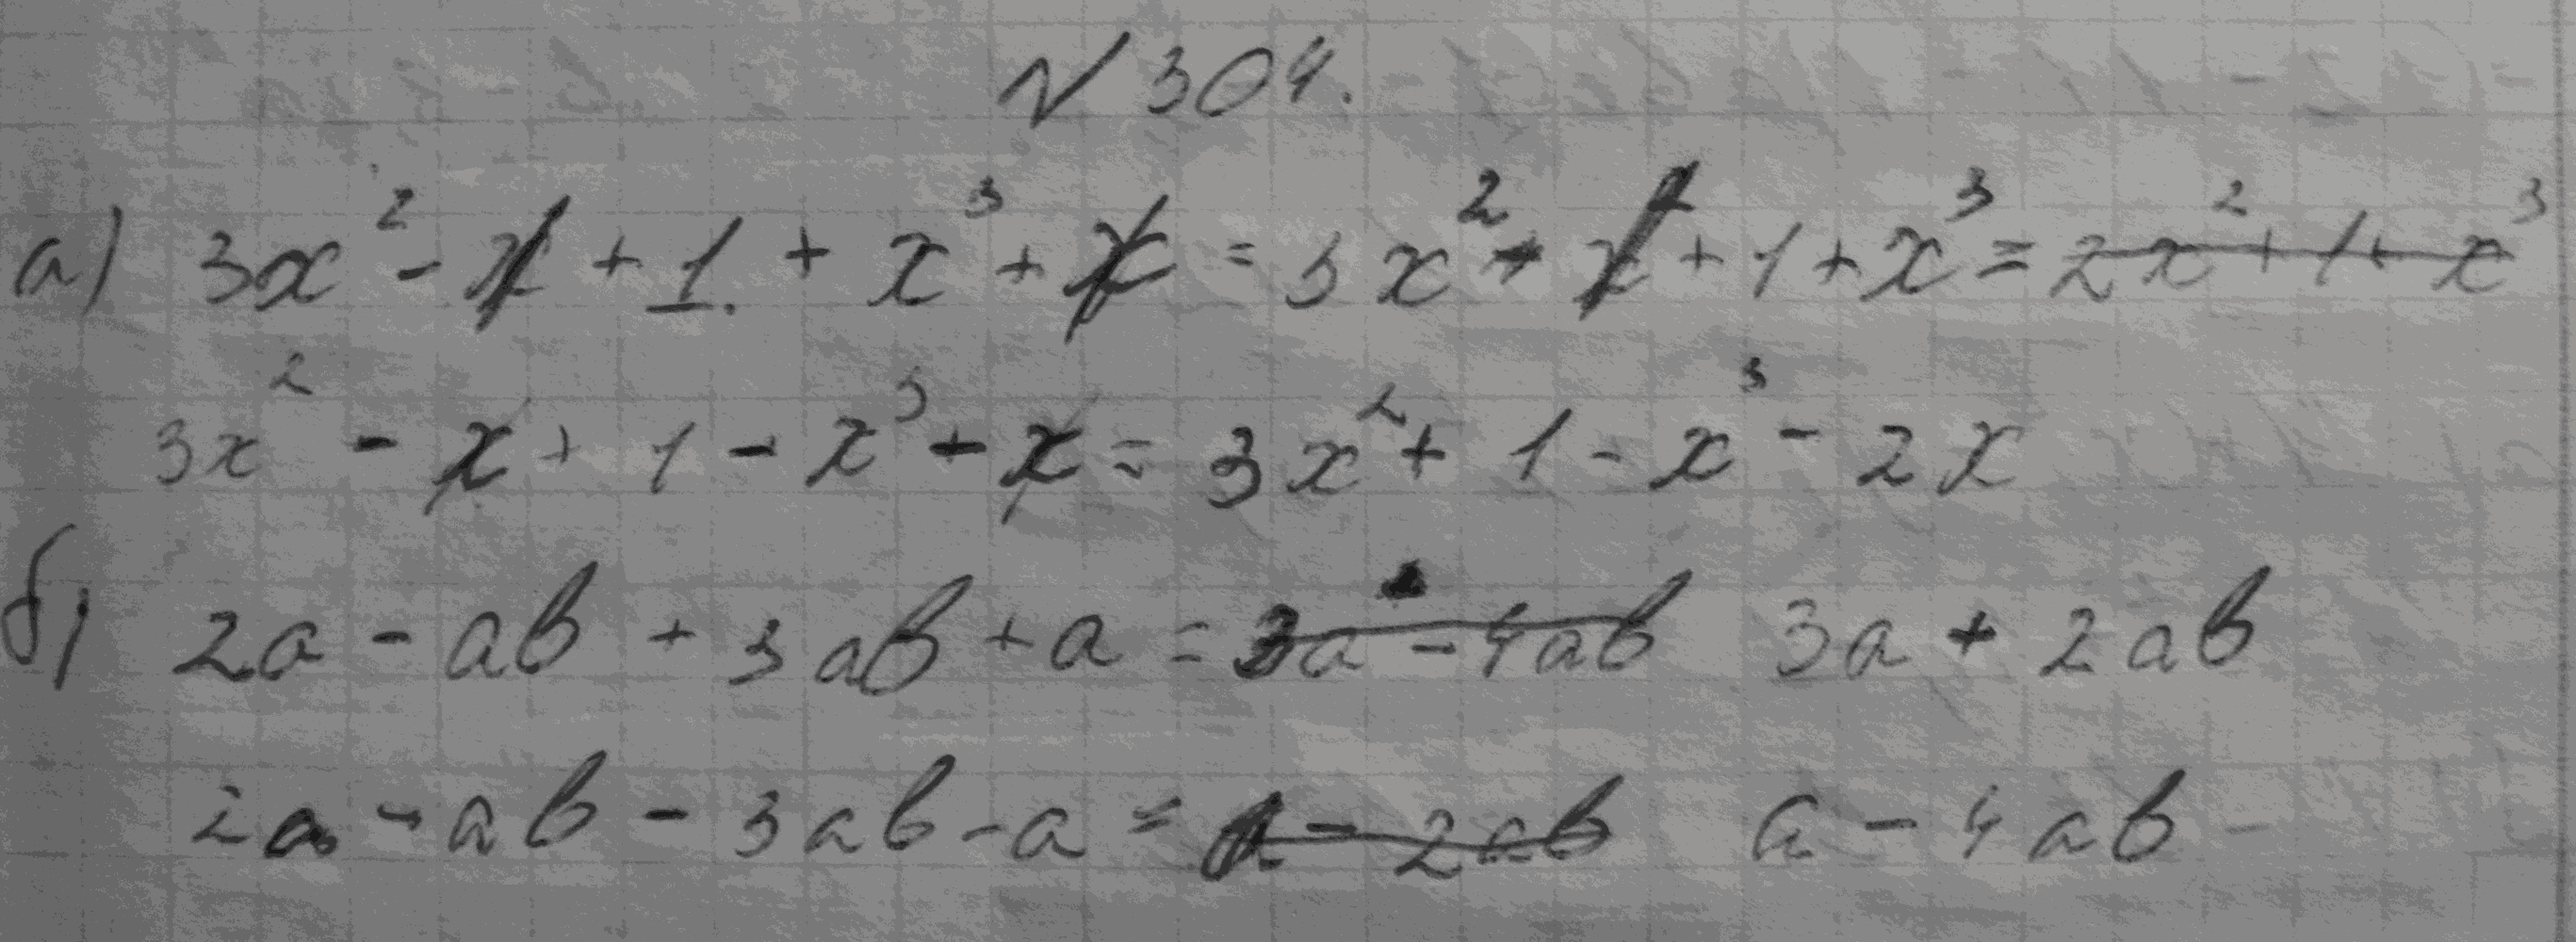 №304.
а) 3x² - x + 1. + x³ + x = 3x² + x² + 1 + x³ = 2x² + 1 + x³
3x² - x + 1 - x³ - x = 3x² + 1 - x³ - 2x
б) 2a - ab + 3ab + a = 3a - 4ab 3a + 2ab
2a - ab - 3ab - a = a - 2ab a - 4ab